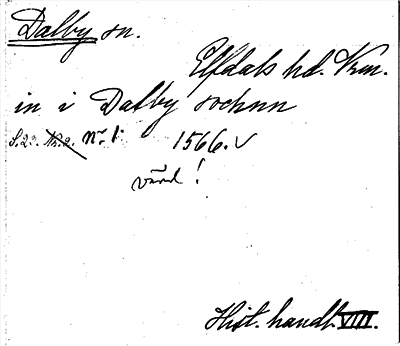 Dalby sn.
Elfdals hd. Vrm.
in i Dalby sochnn
S. 23. Nr. 2. nr. 1 1566. v
värd!
Hist. handl. VIII.